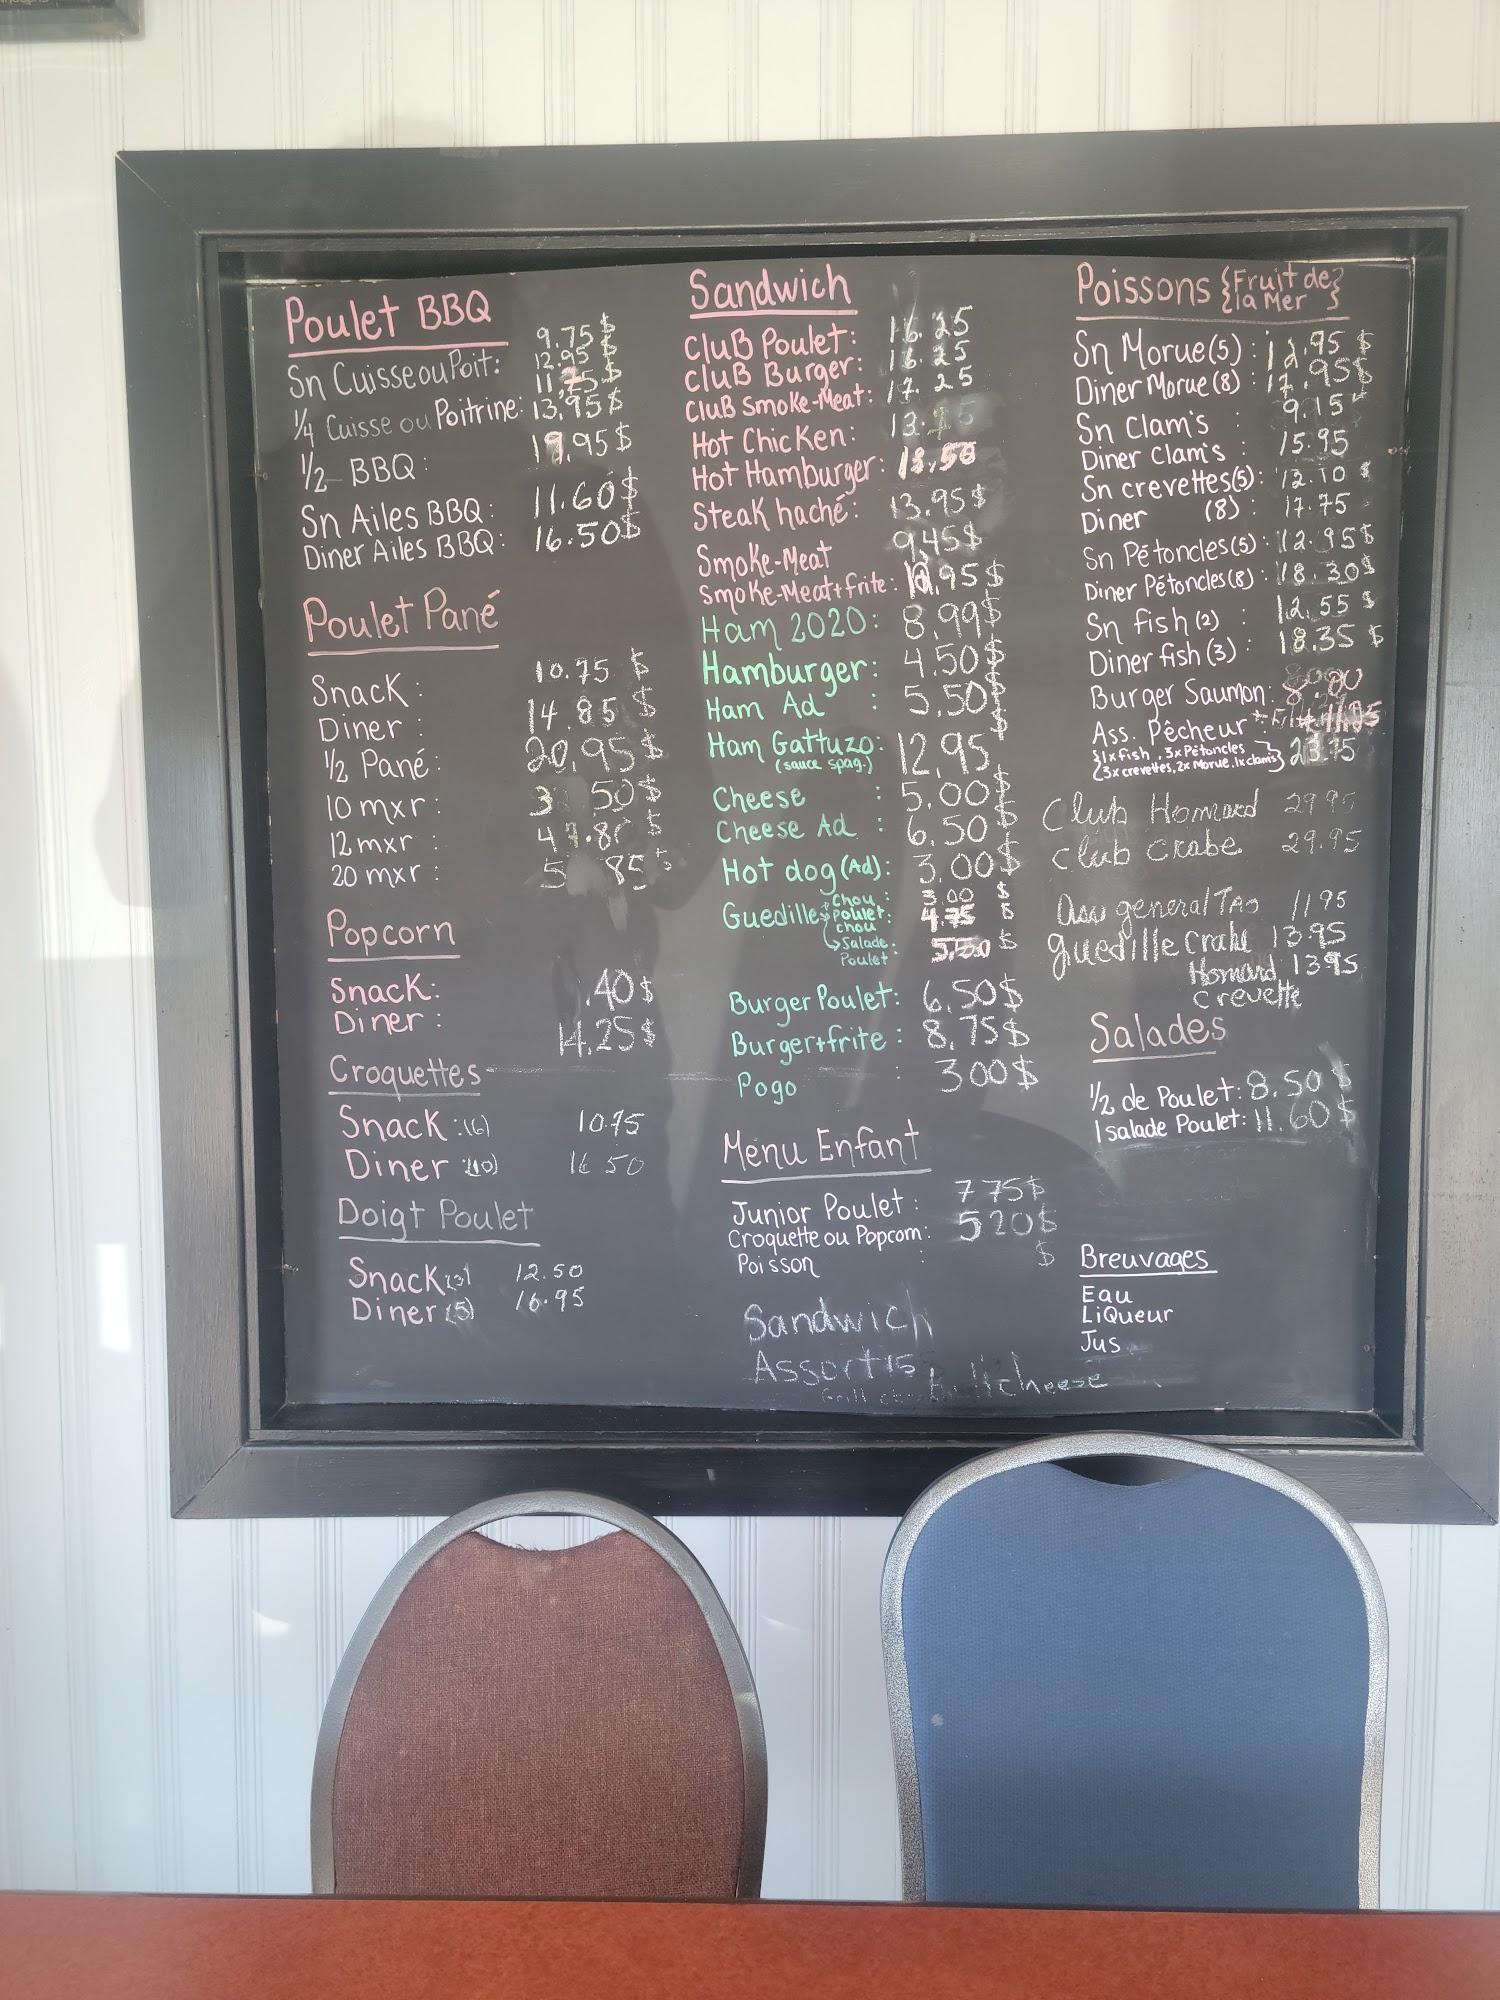 Poulet BBQ
9.75$
Sn Cuisse ou Poit: 12.95$
11.75$
1/4 Cuisse ou Poitrine: 13.95$
1/2 BBQ: 19.95$
Sn Ailes BBQ: 11.60$
Diner Ailes BBQ: 16.50$
Poulet Pané
Snack: 10.75 $
Diner: 14.85 $
1/2 Pané: 20,95$
10 mxr: 50$
12 mxr: $
20 mxr: 85$
Popcorn
Snack: .40$
Diner: 14.25$
Croquettes
Snack:(6) 10.75
Diner (10) 50
Doigt Poulet
Snack(3) 12.50
Diner(5) 16.95
Sandwich
Club Poulet: 16.25
Club Burger: 16.25
Club Smoke-Meat: 17.25
Hot Chicken:
Hot Hamburger:
Steak haché: 13.95$
Smoke-Meat 9,45$
Smoke-Meat+frite: 95$
Ham 2020: 8,99$
Hamburger: 4.50$
Ham Ad : 5,50$
Ham Gattuzo: 12,95 $
(sauce spag.)
Cheese : 5,00$
Cheese Ad : 6,50$
Hot dog (Ad): 3,00$
Guedille Chou : 3.00 $
Poulet: 4.75 $
chou
Salade : 5,50 $
Poulet
Burger Poulet: 6.50$
Burger+frite: 8,75$
Pogo : 300$
Menu Enfant
Junior Poulet: 775$
Croquette ou Popcorn: 520$
Poisson : $
Sandwich
Assortis
cheese
Poissons {Fruit de
la Mer}
Sn Morue(5) : 12.95 $
Diner Morue(8) : 17.95$
Sn Clam's : 9.15
Diner Clam's : 15.95
Sn crevettes(5): 12.10 $
Diner (8) : 17.75
Sn Pétoncles(5): 12.95$
Diner Pétoncles(8): 18.30$
Sn fish (2) : 12.55 $
Diner fish (3) : 18.35 $
Burger Saumon: 8.80
Ass. Pêcheur 23.75
{1x fish, 3x Pétoncles
3x crevettes, 2x Morue, 1x clams}
Club Homard 29.95
Club Crabe 29.95
general TAO 1195
guedille Crabe 1395
Homard 1395
Crevette
Salades
1/2 de Poulet: 8.50$
1 salade Poulet: 11.60$
Breuvages
Eau
LiQueur
Jus